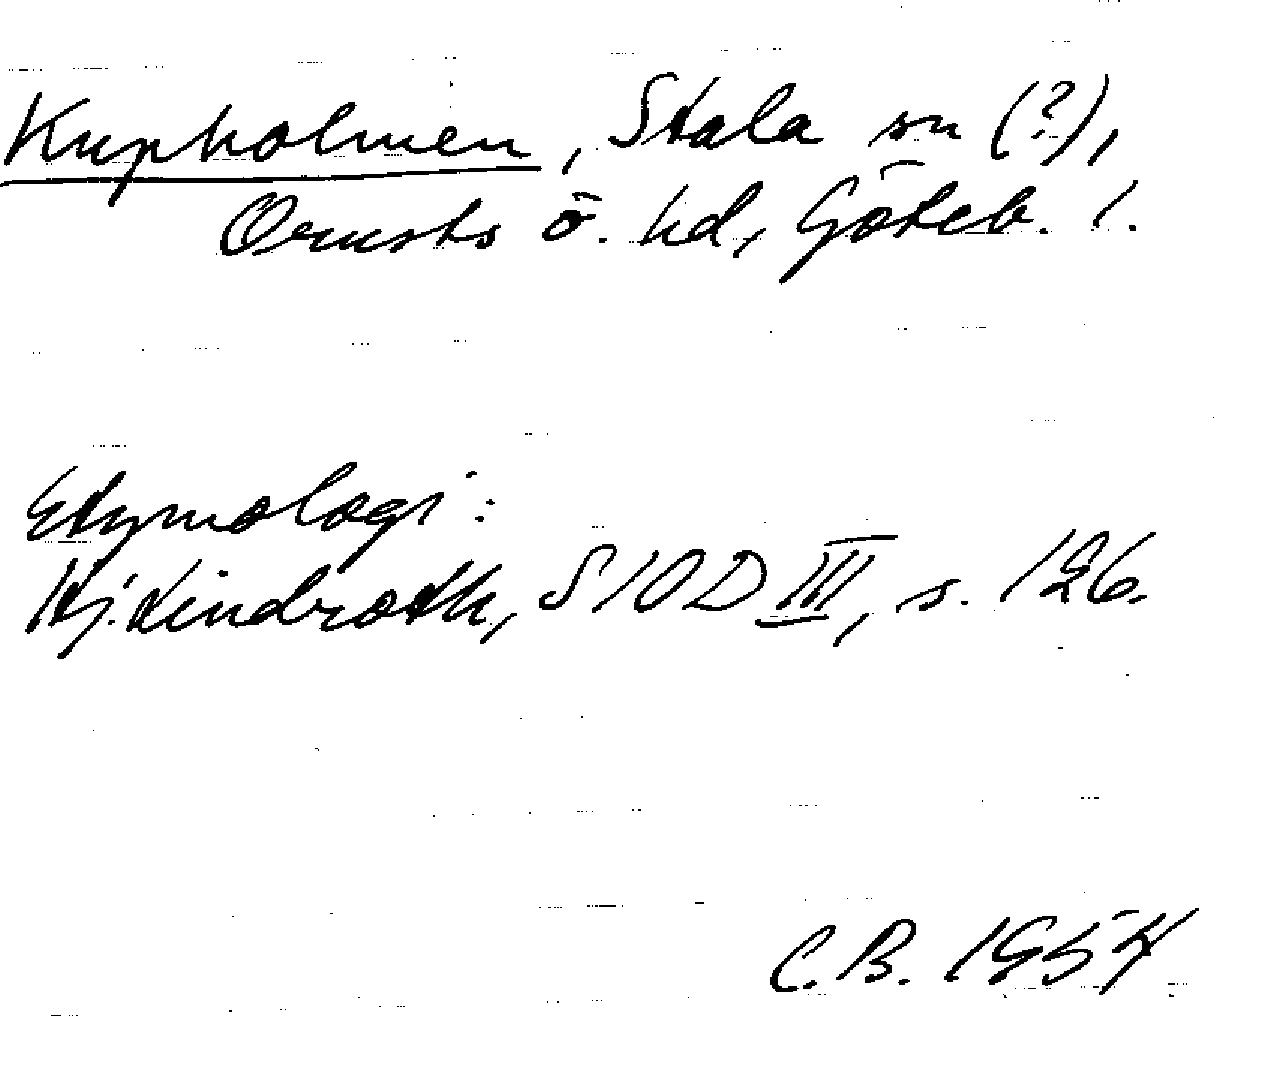 Kupholmen, Stala sn (?),
Orusts ö. hd, Göteb. l.
Etymologi:
Hj. Lindroth, SIOD III, s. 126.
C.B. 1954